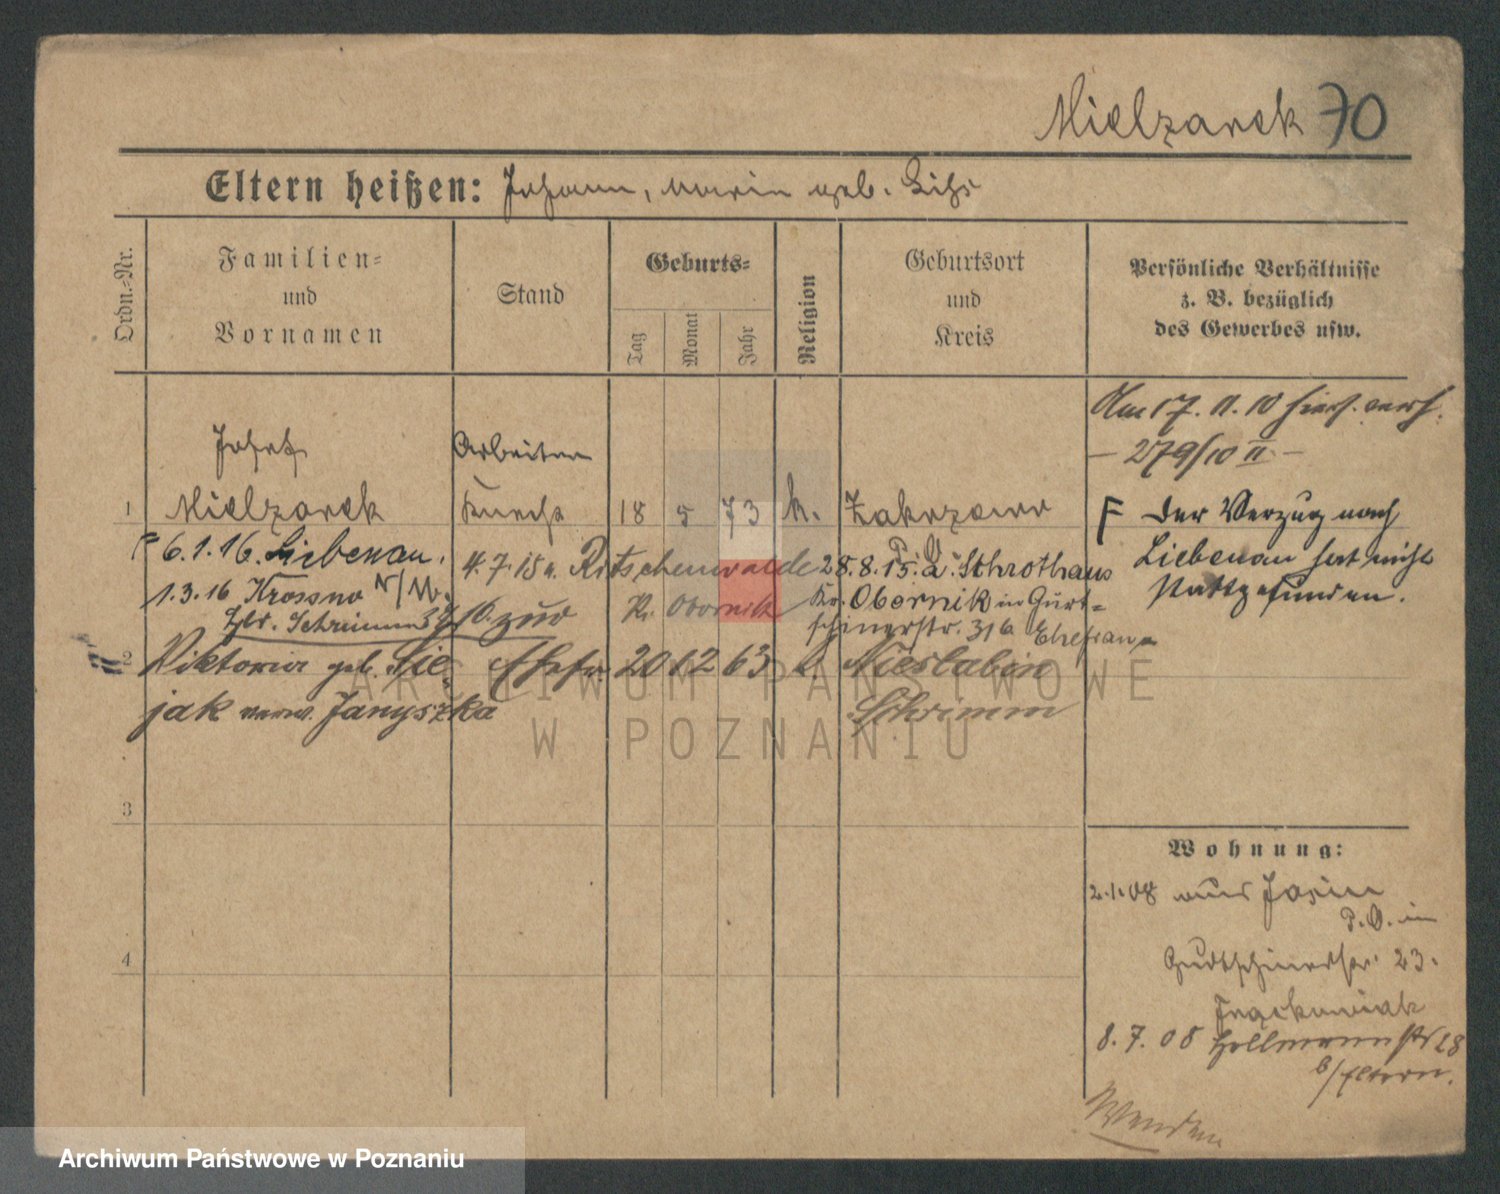 Mielzarek 70
Eltern heißen: Johann, Maria geb.
Ordn.-Nr.
Familien- und Vornamen
Stand
Geburts-
Tag
Monat
Jahr
Religion
Geburtsort und Kreis
Persönliche Verhältnisse
z. B. bezüglich
des Gewerbes usw.
Am 17. 11. 10
— 279/10 II —
Josef
Arbeiter
1 Mielzarek Knecht 18 5 73 k. Zakrzewo
F Der Verzug nach
Liebenau hat nicht
stattgefunden.
F 6.1.16. Liebenau.
4.7.15 n. Ritschenwalde 28.8.15. a. Schrothaus
1.3.16 Krossno
Kr. Obornik Kr. Obornik in Gurt-
schinerstr. 31a Ehefrau
2 Viktoria geb. Sie- Ehefr. 20 12 63 k. Nieslabin
jak verw. Januszka Schrimm
3
4
Wohnung:
2.1.08 aus Jasin
P.O. in
Gurtschinerstr. 23.
8.7.08 Hellmannstr 28
b/Eltern.
Wenden
ARCHIWUM PAŃSTWOWE
W POZNANIU
Archiwum Państwowe w Poznaniu